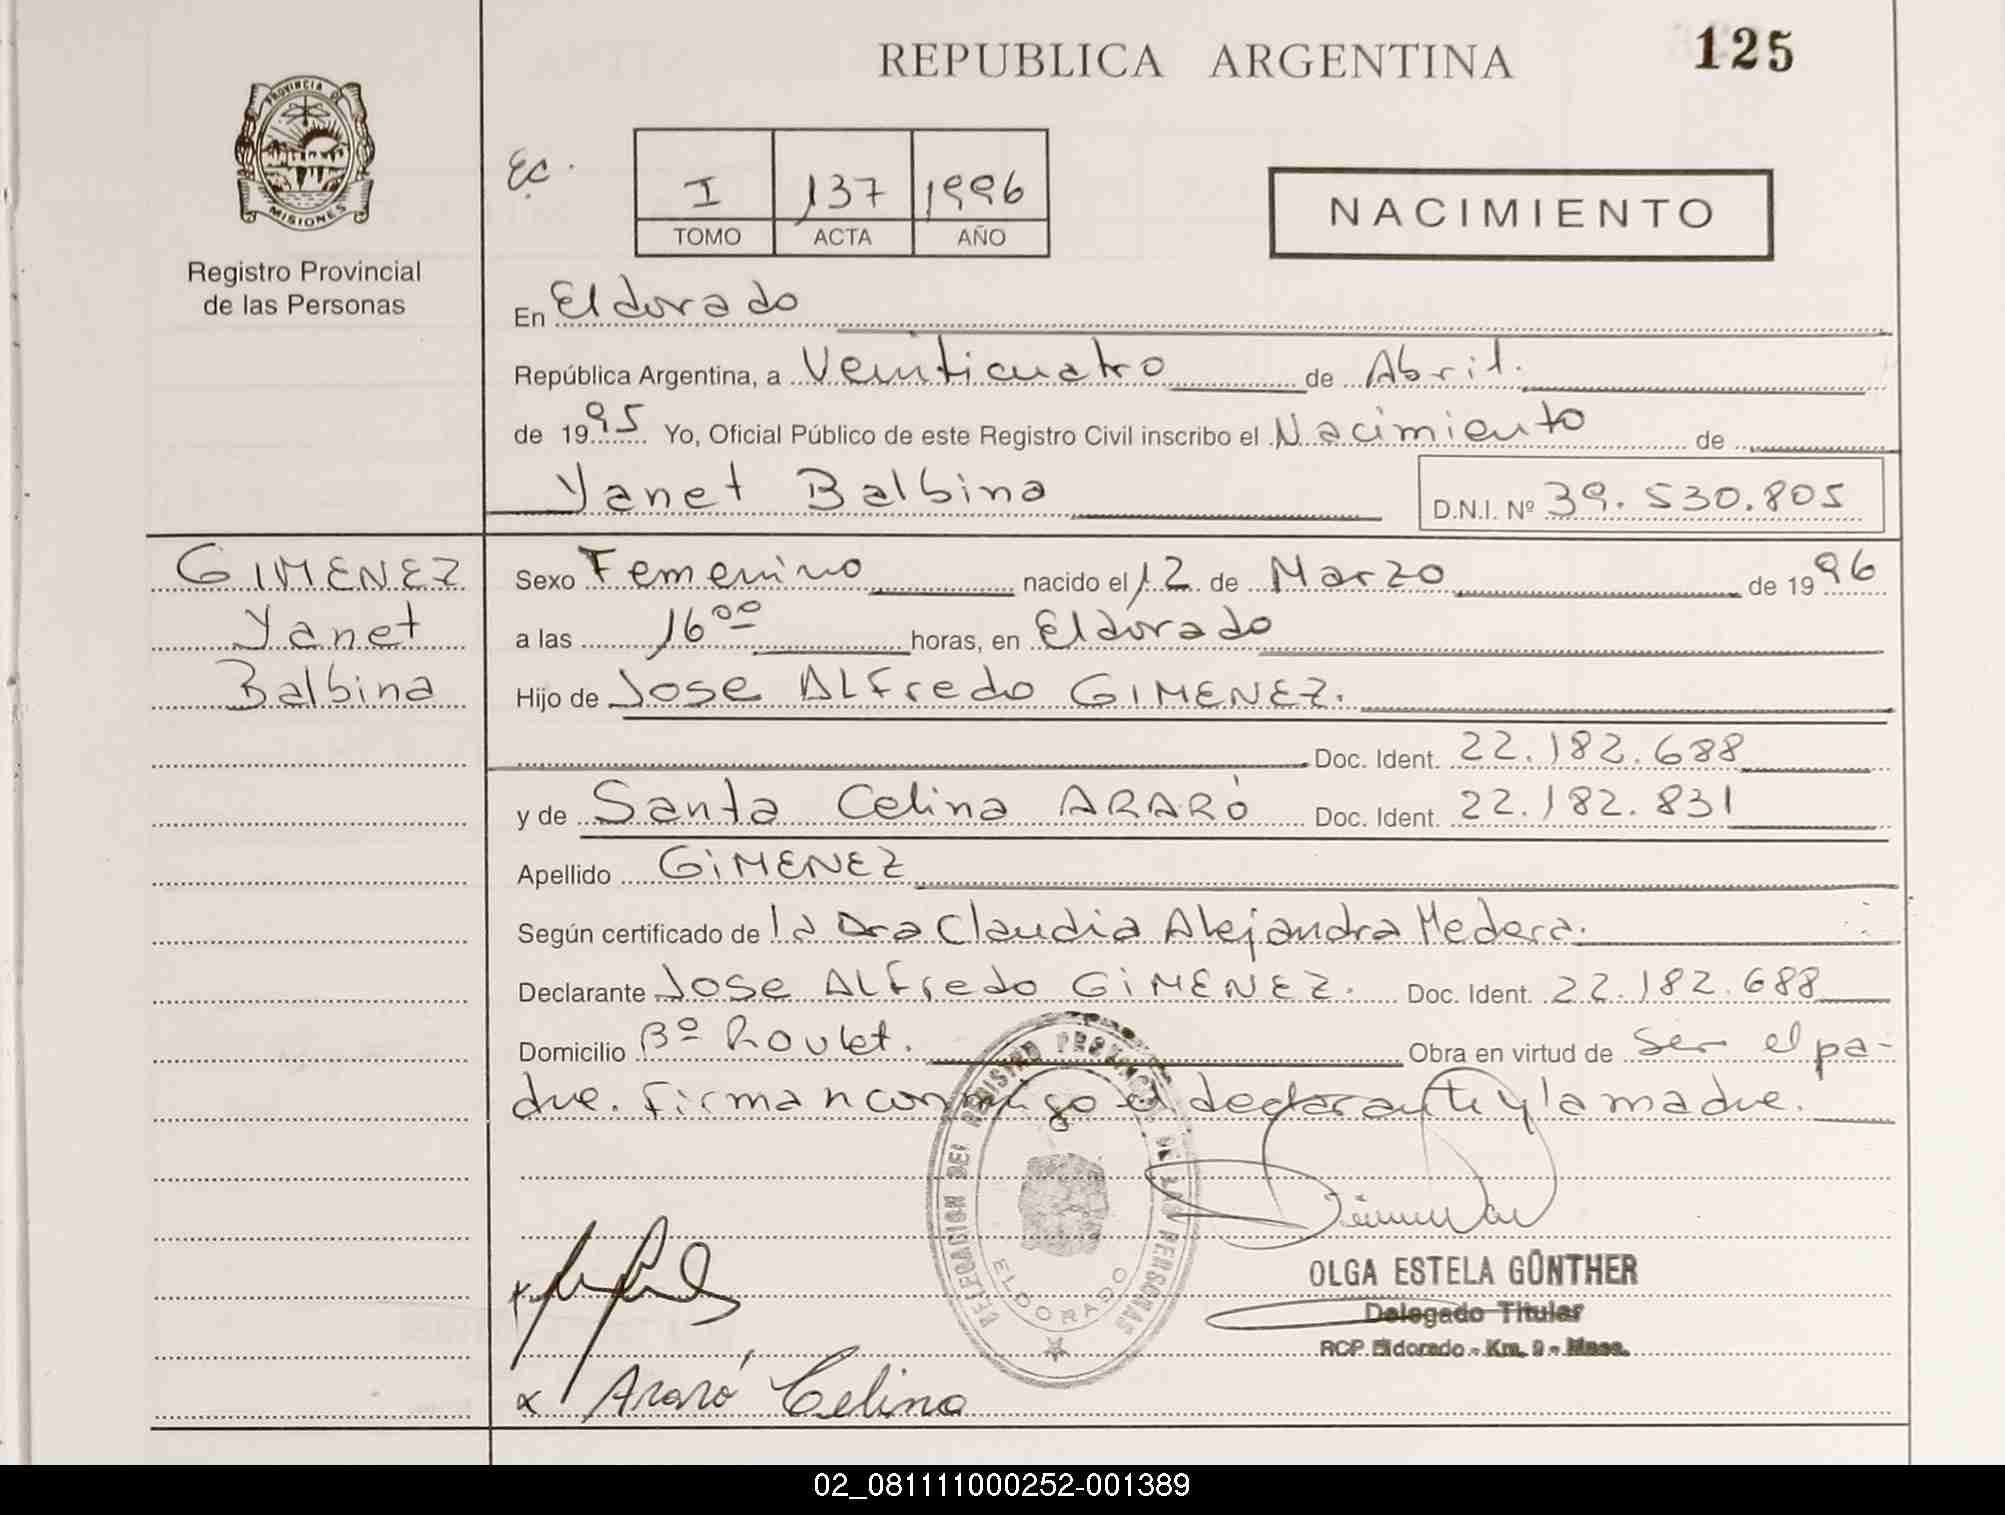 REPUBLICA ARGENTINA
125
PROVINCIA DE
MISIONES
Registro Provincial
de las Personas
Ec.
I 137 1996
TOMO ACTA AÑO
NACIMIENTO
En Eldorado
República Argentina, a Veinticuatro de Abril.
de 1995 Yo, Oficial Público de este Registro Civil inscribo el Nacimiento de
Yanet Balbina D.N.I. Nº 39.530.805
GIMENEZ
Yanet
Balbina
Sexo Femenino nacido el 12 de Marzo de 1996
a las 16ºº horas, en Eldorado
Hijo de Jose ALFredo GIMENEZ.
Doc. Ident. 22.182.688
y de Santa Celina ARARÓ Doc. Ident. 22.182.831
Apellido GIMENEZ
Según certificado de la Dra Claudia Alejandra Medera.
Declarante Jose ALFredo GIMENEZ. Doc. Ident. 22.182.688
Domicilio Bº Roulet. Obra en virtud de ser el pa-
dre. Firman conmigo el declarante y la madre.
DELEGACION DEL REGISTRO PROVINCIAL DE LAS PERSONAS
ELDORADO
OLGA ESTELA GÜNTHER
Delegado Titular
RCP Eldorado - Km. 9 - Mnes.
x
x Araró Celina
02_081111000252-001389